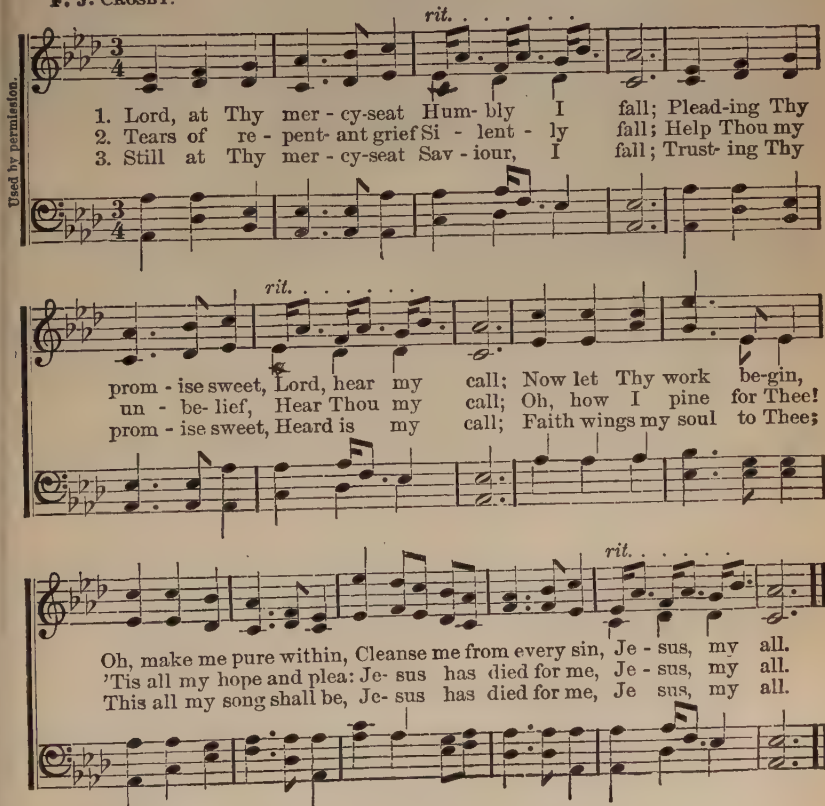 F. J. CROSBY.
rit. . . . . . .
Used by permission.
3
4
1. Lord, at Thy mer - cy-seat Hum- bly I fall; Plead-ing Thy
2. Tears of re - pent- ant grief Si - lent - ly fall; Help Thou my
3. Still at Thy mer - cy-seat Sav - iour, I fall; Trust- ing Thy
3
4
rit. . . . . . .
prom - ise sweet, Lord, hear my call; Now let Thy work be-gin,
un - be- lief, Hear Thou my call; Oh, how I pine for Thee!
prom - ise sweet, Heard is my call; Faith wings my soul to Thee;
rit. . . . . .
Oh, make me pure within, Cleanse me from every sin, Je - sus, my all.
'Tis all my hope and plea: Je- sus has died for me, Je - sus, my all.
This all my song shall be, Je- sus has died for me, Je sus, my all.